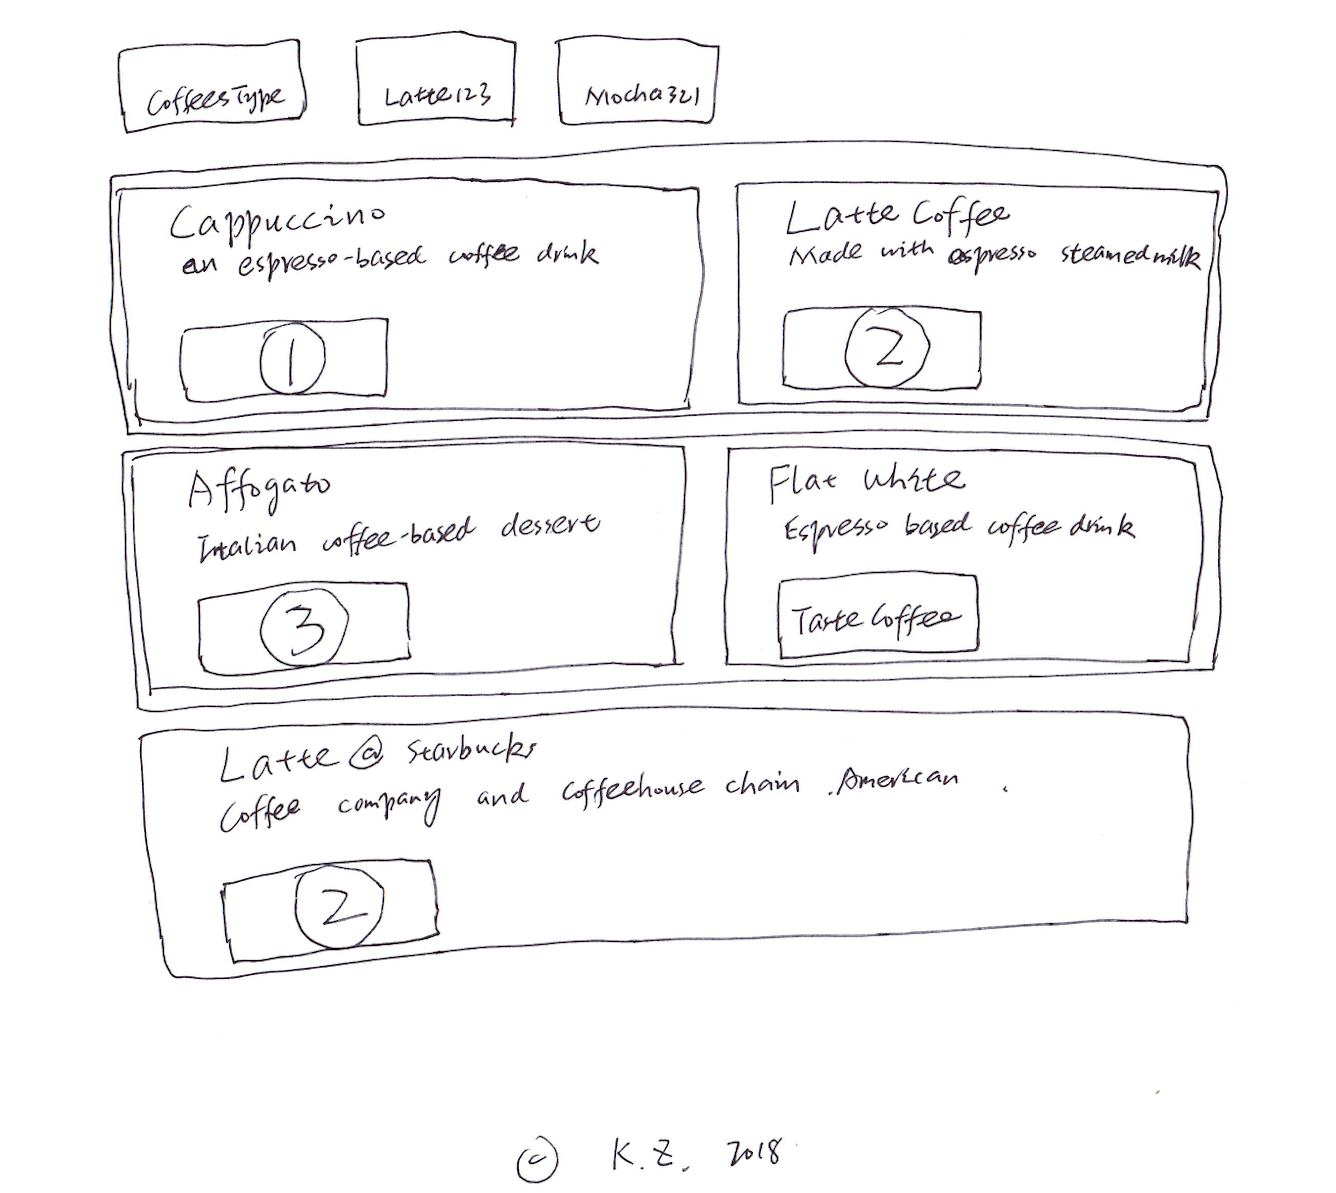 CoffeesType Latte123 Mocha321
Cappuccino
an espresso-based coffee drink
①
Latte Coffee
Made with espresso steamed milk
②
Affogato
Intalian coffee-based dessert
③
Flat White
Espresso based coffee drink
Taste Coffee
Latte @ Starbucks
Coffee company and coffeehouse chain .American .
②
© K.Z. 2018